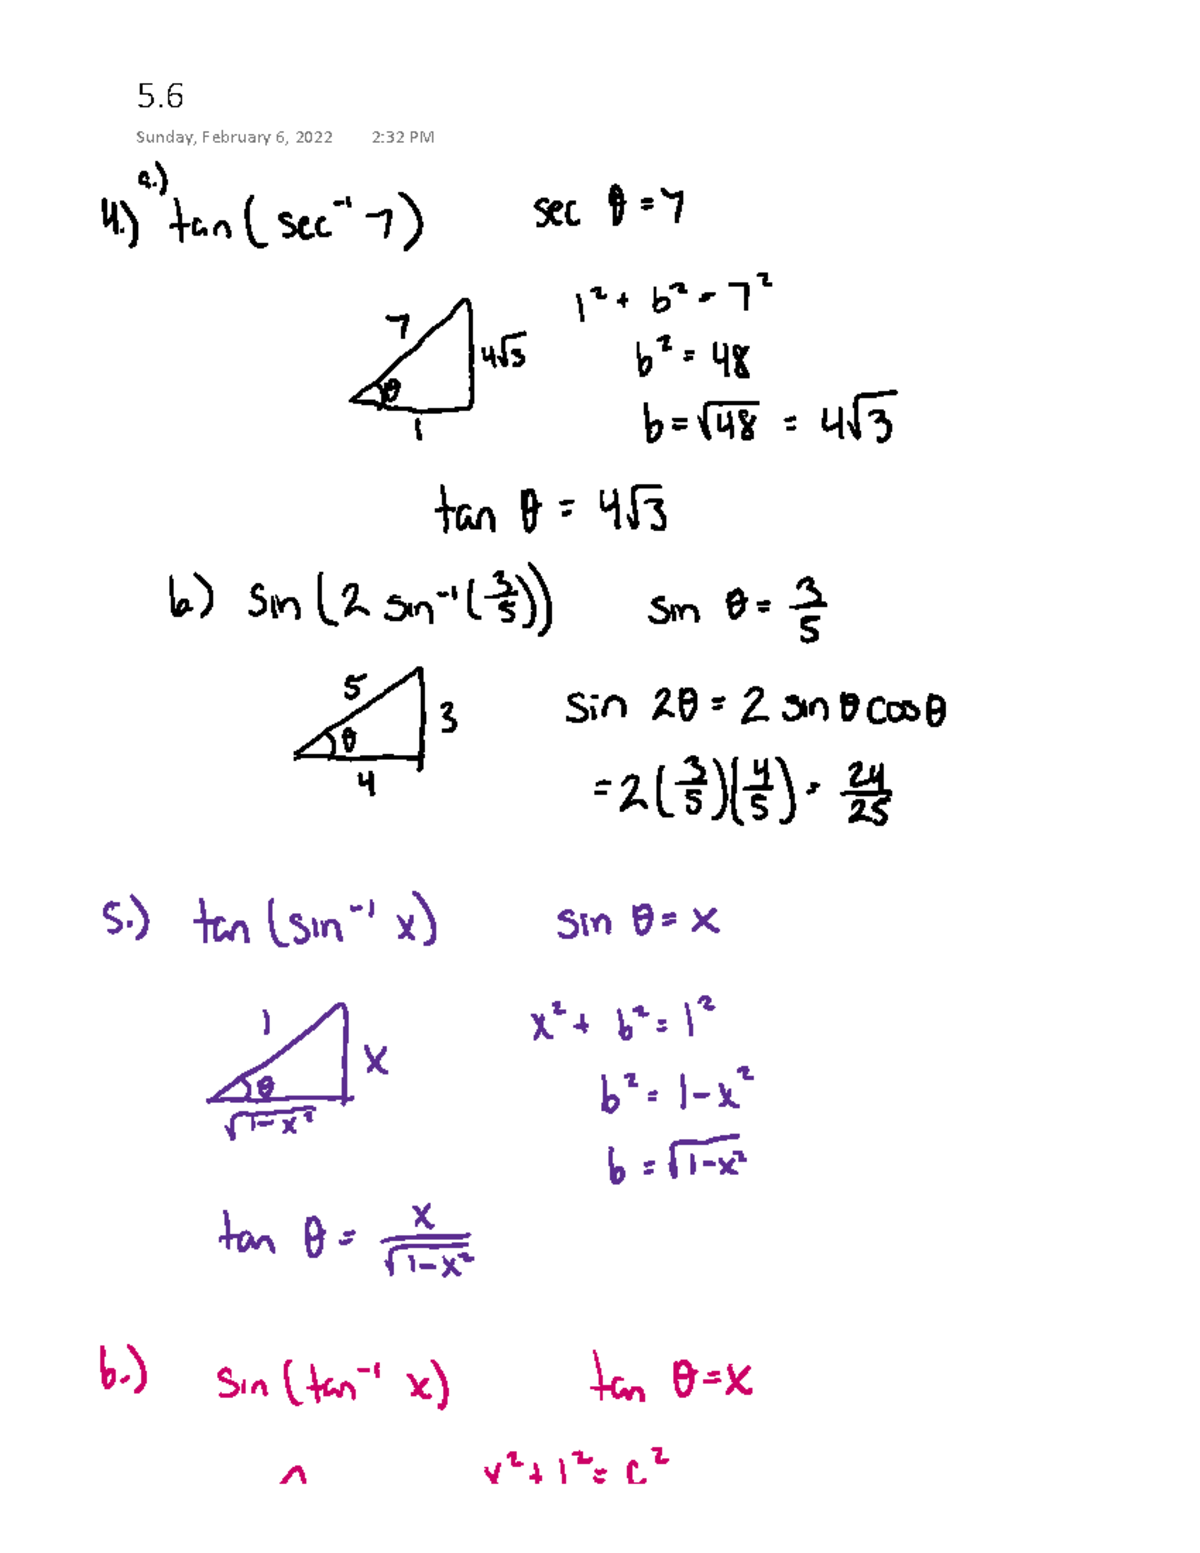 5.6
Sunday, February 6, 2022 2:32 PM
4.) a.) tan(sec⁻¹ 7) sec θ = 7
1² + b² = 7²
7
4√3
b² = 48
θ
1
b = √48 = 4√3
tan θ = 4√3
b) sin(2 sin⁻¹(3/5)) sin θ = 3/5
5
3
sin 2θ = 2 sin θ cos θ
θ
4
= 2(3/5)(4/5) = 24/25
5.) tan(sin⁻¹ x) sin θ = x
1
x² + b² = 1²
x
θ
b² = 1-x²
√1-x²
b = √1-x²
tan θ = x/√1-x²
6.) sin(tan⁻¹ x) tan θ = x
x² + 1² = c²